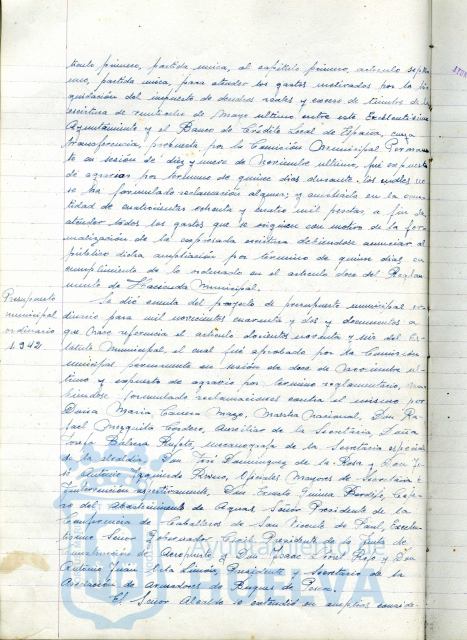 tículo primero, partida única, al capítulo primero, artículo sépti-
mo, partida única, para atender los gastos motivados por la li-
quidación del impuesto de derechos reales y exceso de timbre de la
escritura de veintiocho de Mayo último entre este Excelentísimo
Ayuntamiento y el Banco de Crédito Local de España, cuya
transferencia, propuesta por la Comisión Municipal Permanen-
te en sesión de diez y nueve de Noviembre último, fué expuesta
de agravios por término de quince días durante los cuales no
se ha formulado reclamación alguna; y ampliarla en la can-
tidad de cuatrocientas ochenta y cuatro mil pesetas a fin de
atender todos los gastos que se originen con motivo de la for-
malización de la expresada escritura debiéndose anunciar al
público dicha ampliación por término de quince días en
cumplimiento de lo ordenado en el artículo doce del Regla-
mento de Hacienda Municipal.
Presupuesto
municipal
ordinario
1.942
Se dió cuenta del proyecto de presupuesto municipal or-
dinario para mil novecientos cuarenta y dos y documentos a
que hace referencia el artículo doscientos noventa y seis del Es-
tatuto Municipal, el cual fué aprobado por la Comisión
municipal permanente en sesión de doce de Noviembre úl-
timo y expuesto de agravio por término reglamentario, ha-
biéndose formulado reclamaciones contra el mismo por
Doña María Mazo, Maestra Nacional, Don Ra-
fael Mezquita Cordero, Auxiliar de la Secretaría, Doña
Josefa Rufete, mecanógrafa de la Secretaría especial
de la alcaldía, Don José Domínguez de la Rosa y Don Jo-
sé Antonio Izquierdo, Oficiales Mayores de Secretaría e
Intervención respectivamente, Don Guima
del Abastecimiento de Aguas, Señor Presidente de la
Conferencia de Caballeros de San Vicente de Paul, Excelen-
tísimo Señor Gobernador Civil Presidente de la Junta de
Construcción de Aeropuerto, y Don Rojo y Don
Antonio, Presidente y Secretario de la
Asociación de Armadores de Buques de Pesca.
El Señor Alcalde se extendió en amplias conside-
Ayuntamiento de
HUELVA